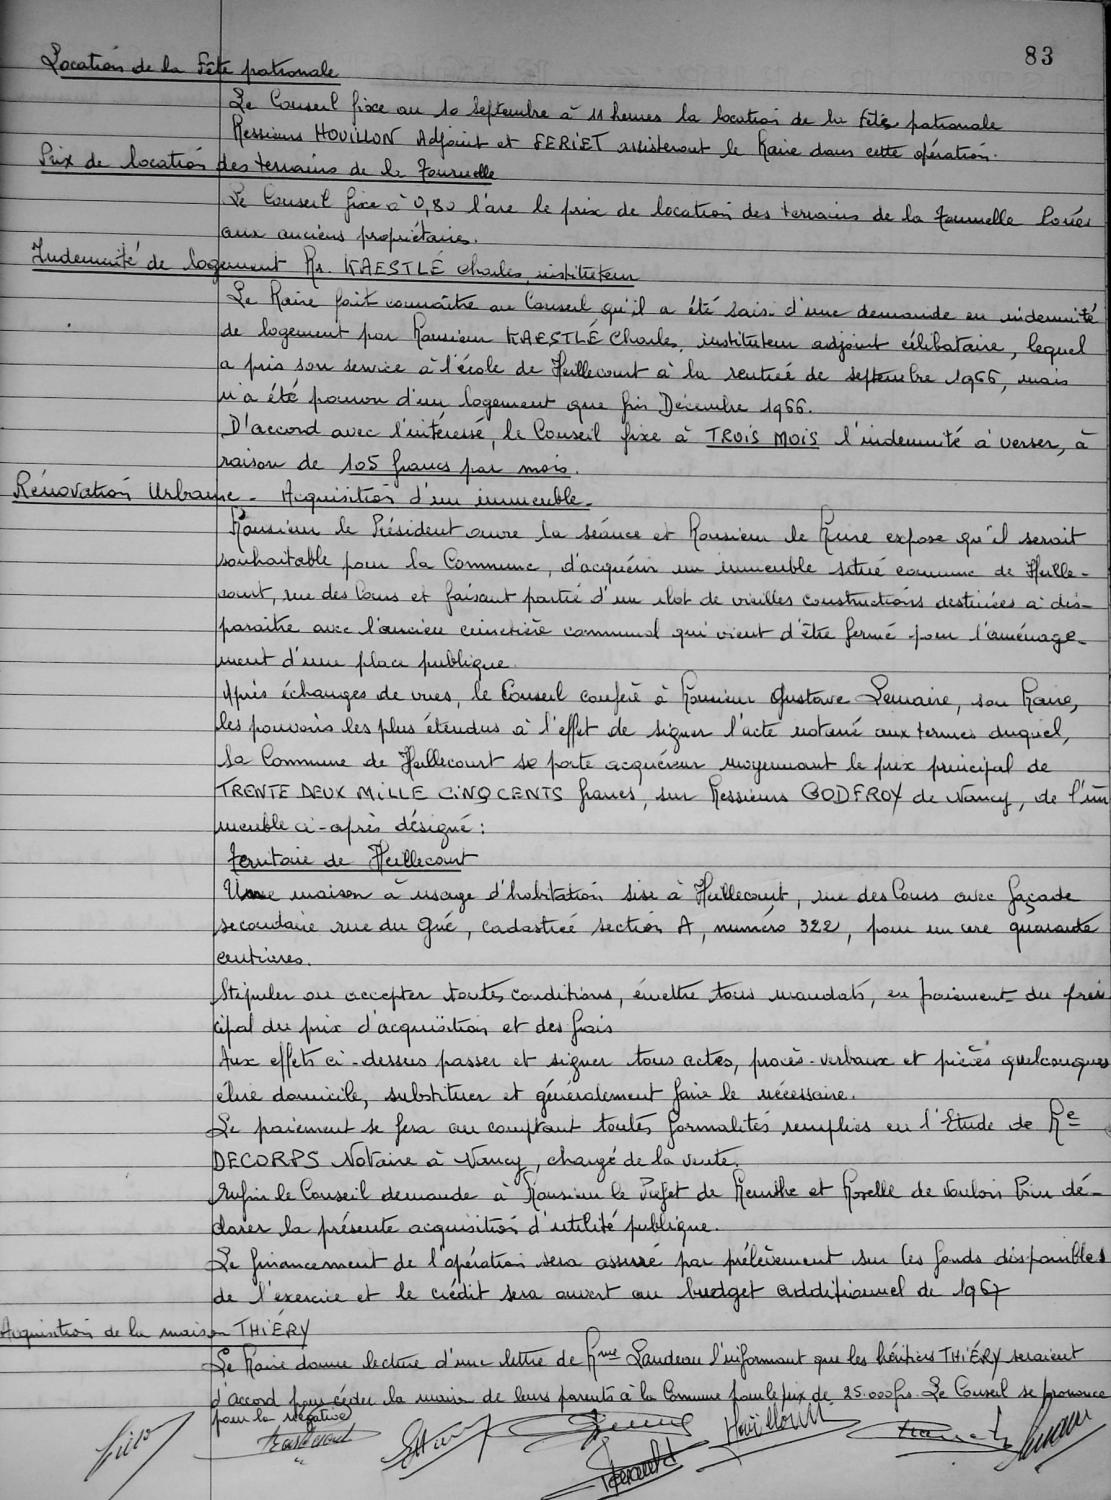 83
Location de la Fête patronale
Le Conseil fixe au 10 Septembre à 11 heures la location de la Fête patronale
Messieurs HOUILLON Adjoint et FERIET assisteront le Maire dans cette opération.
Prix de location des terrains de la Fournelle
Le Conseil fixe à 0,80 l'are le prix de location des terrains de la Fournelle loués
aux anciens propriétaires.
Indemnité de logement Mr. KAESTLÉ Charles, instituteur
Le Maire fait connaître au Conseil qu'il a été saisi d'une demande en indemnité
de logement par Monsieur KAESTLÉ Charles, instituteur adjoint célibataire, lequel
a pris son service à l'école de Heillecourt à la rentrée de septembre 1966, mais
n'a été pourvu d'un logement que fin Décembre 1966.
D'accord avec l'intéressé, le Conseil fixe à TROIS MOIS l'indemnité à verser, à
raison de 105 francs par mois.
Rénovation Urbaine - Acquisition d'un immeuble.
Monsieur le Président ouvre la séance et Monsieur le Maire expose qu'il serait
souhaitable pour la Commune, d'acquérir un immeuble situé commune de Heille-
court, rue des Cours et faisant partie d'un ilot de vieilles constructions destinées à dis-
paraitre avec l'ancien cimetière communal qui vient d'être fermé pour l'aménage-
ment d'une place publique.
Après échanges de vues, le Conseil confère à Monsieur Gustave Lemaire, son Maire,
les pouvoirs les plus étendus à l'effet de signer l'acte notarié aux termes duquel,
la Commune de Heillecourt se porte acquéreur moyennant le prix principal de
TRENTE DEUX MILLE CINQ CENTS francs, sur Messieurs GODFROY de Nancy, de l'im
meuble ci-après désigné :
Territoire de Heillecourt
Une maison à usage d'habitation sise à Heillecourt, rue des Cours avec façade
secondaire rue du Gué, cadastrée section A, numéro 322, pour un are quarante
centiares.
Stipuler ou accepter toutes conditions, émettre tous mandats, en paiement du prin
cipal du prix d'acquisition et des frais
Aux effets ci-dessus passer et signer tous actes, procès-verbaux et pièces quelconques
élire domicile, substituer et généralement faire le nécessaire.
Le paiement se fera au comptant toutes formalités remplies en l'Etude de Me
DECORPS Notaire à Nancy, chargé de la vente.
Enfin le Conseil demande à Monsieur le Préfet de Meurthe et Moselle de vouloir bien dé-
clarer la présente acquisition d'utilité publique.
Le financement de l'opération sera assuré par prélèvement sur les fonds disponibles
de l'exercice et le crédit sera ouvert au budget additionnel de 1967
Acquisition de la maison THIÉRY
Le Maire donne lecture d'une lettre de Mme Landeau l'informant que les héritiers THIÉRY seraient
d'accord pour céder la maison de leurs parents à la Commune pour le prix de 25.000 frs. Le Conseil se prononce
pour la négative
Houillon